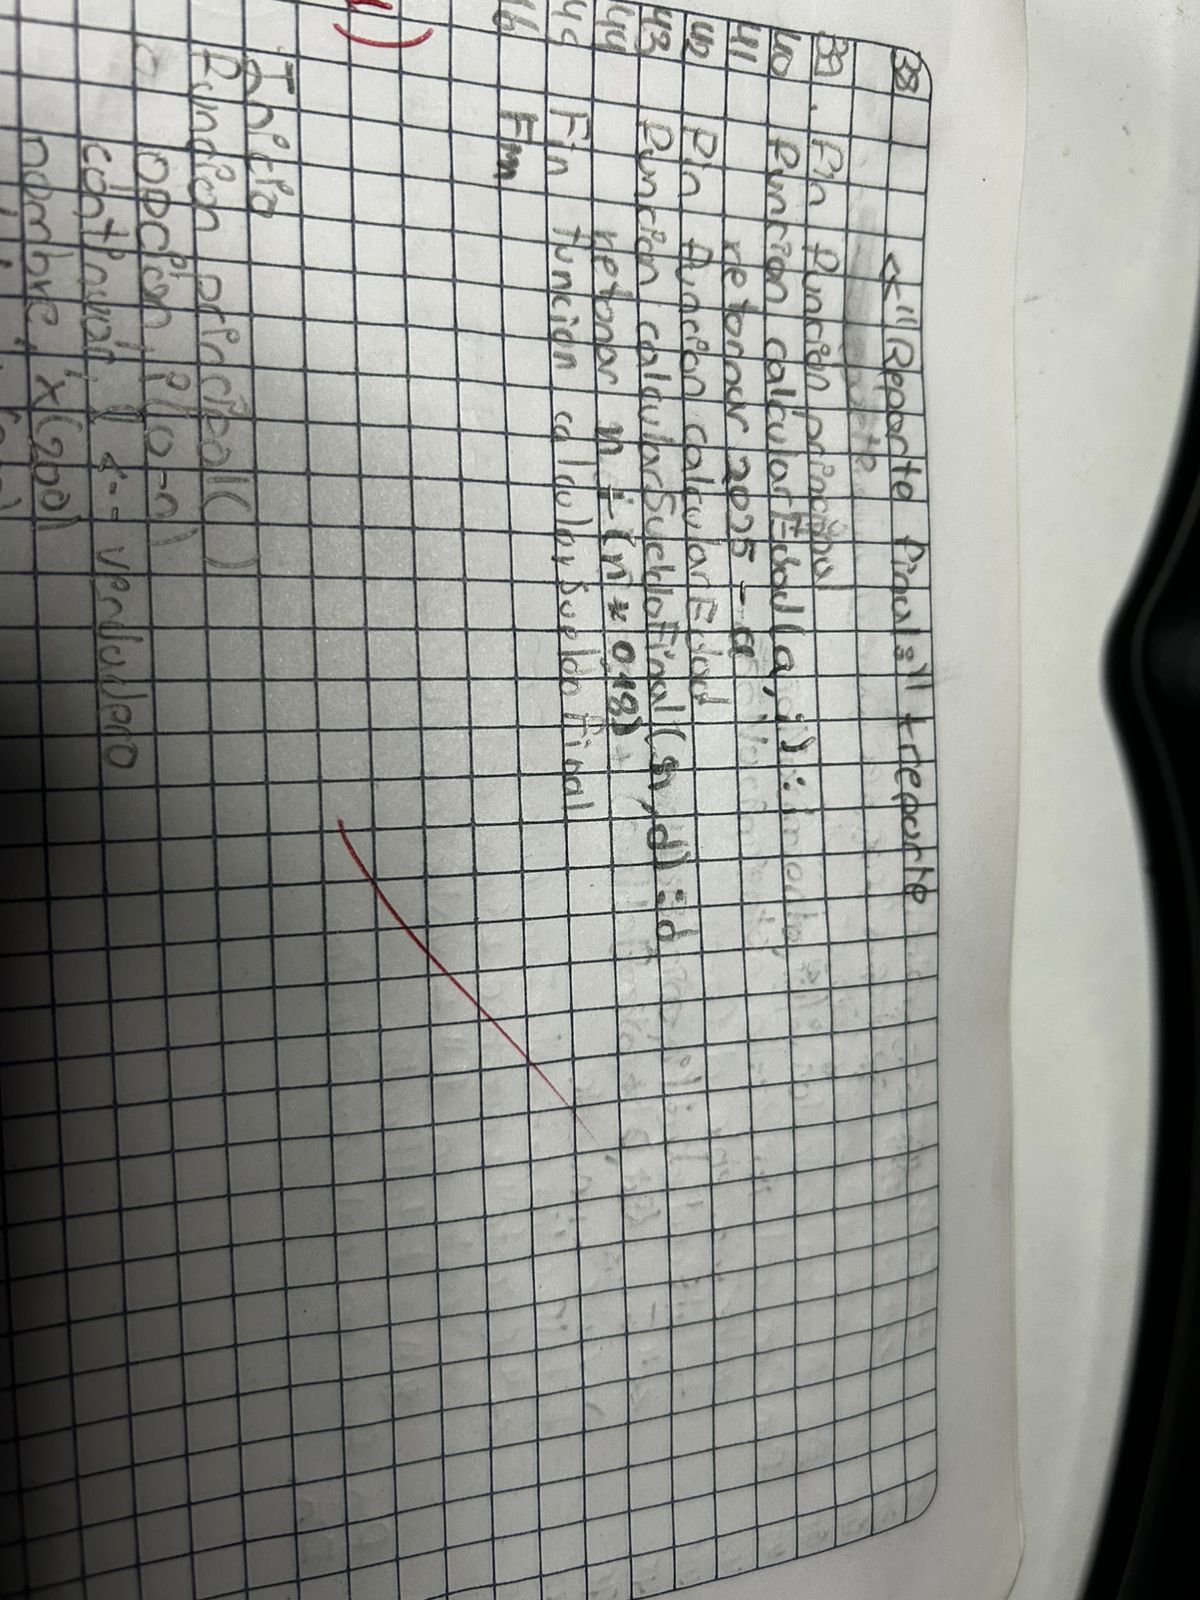 38 << "Reporte final:" + reporte
39. fin funcion principal
40 funcion calcularEdad(a, i): i
41 retornar 2025 - a
42 fin funcion calcularEdad
43 funcion calcularSueldoFinal(n, d): d
44 retonar n + (n * 0.18)
45 Fin funcion calcularSueldo Final
46 Fin
Inicio
funcion principal()
opcion, i(0-n)
continuar, l <-- verdadero
nombre, x(200)